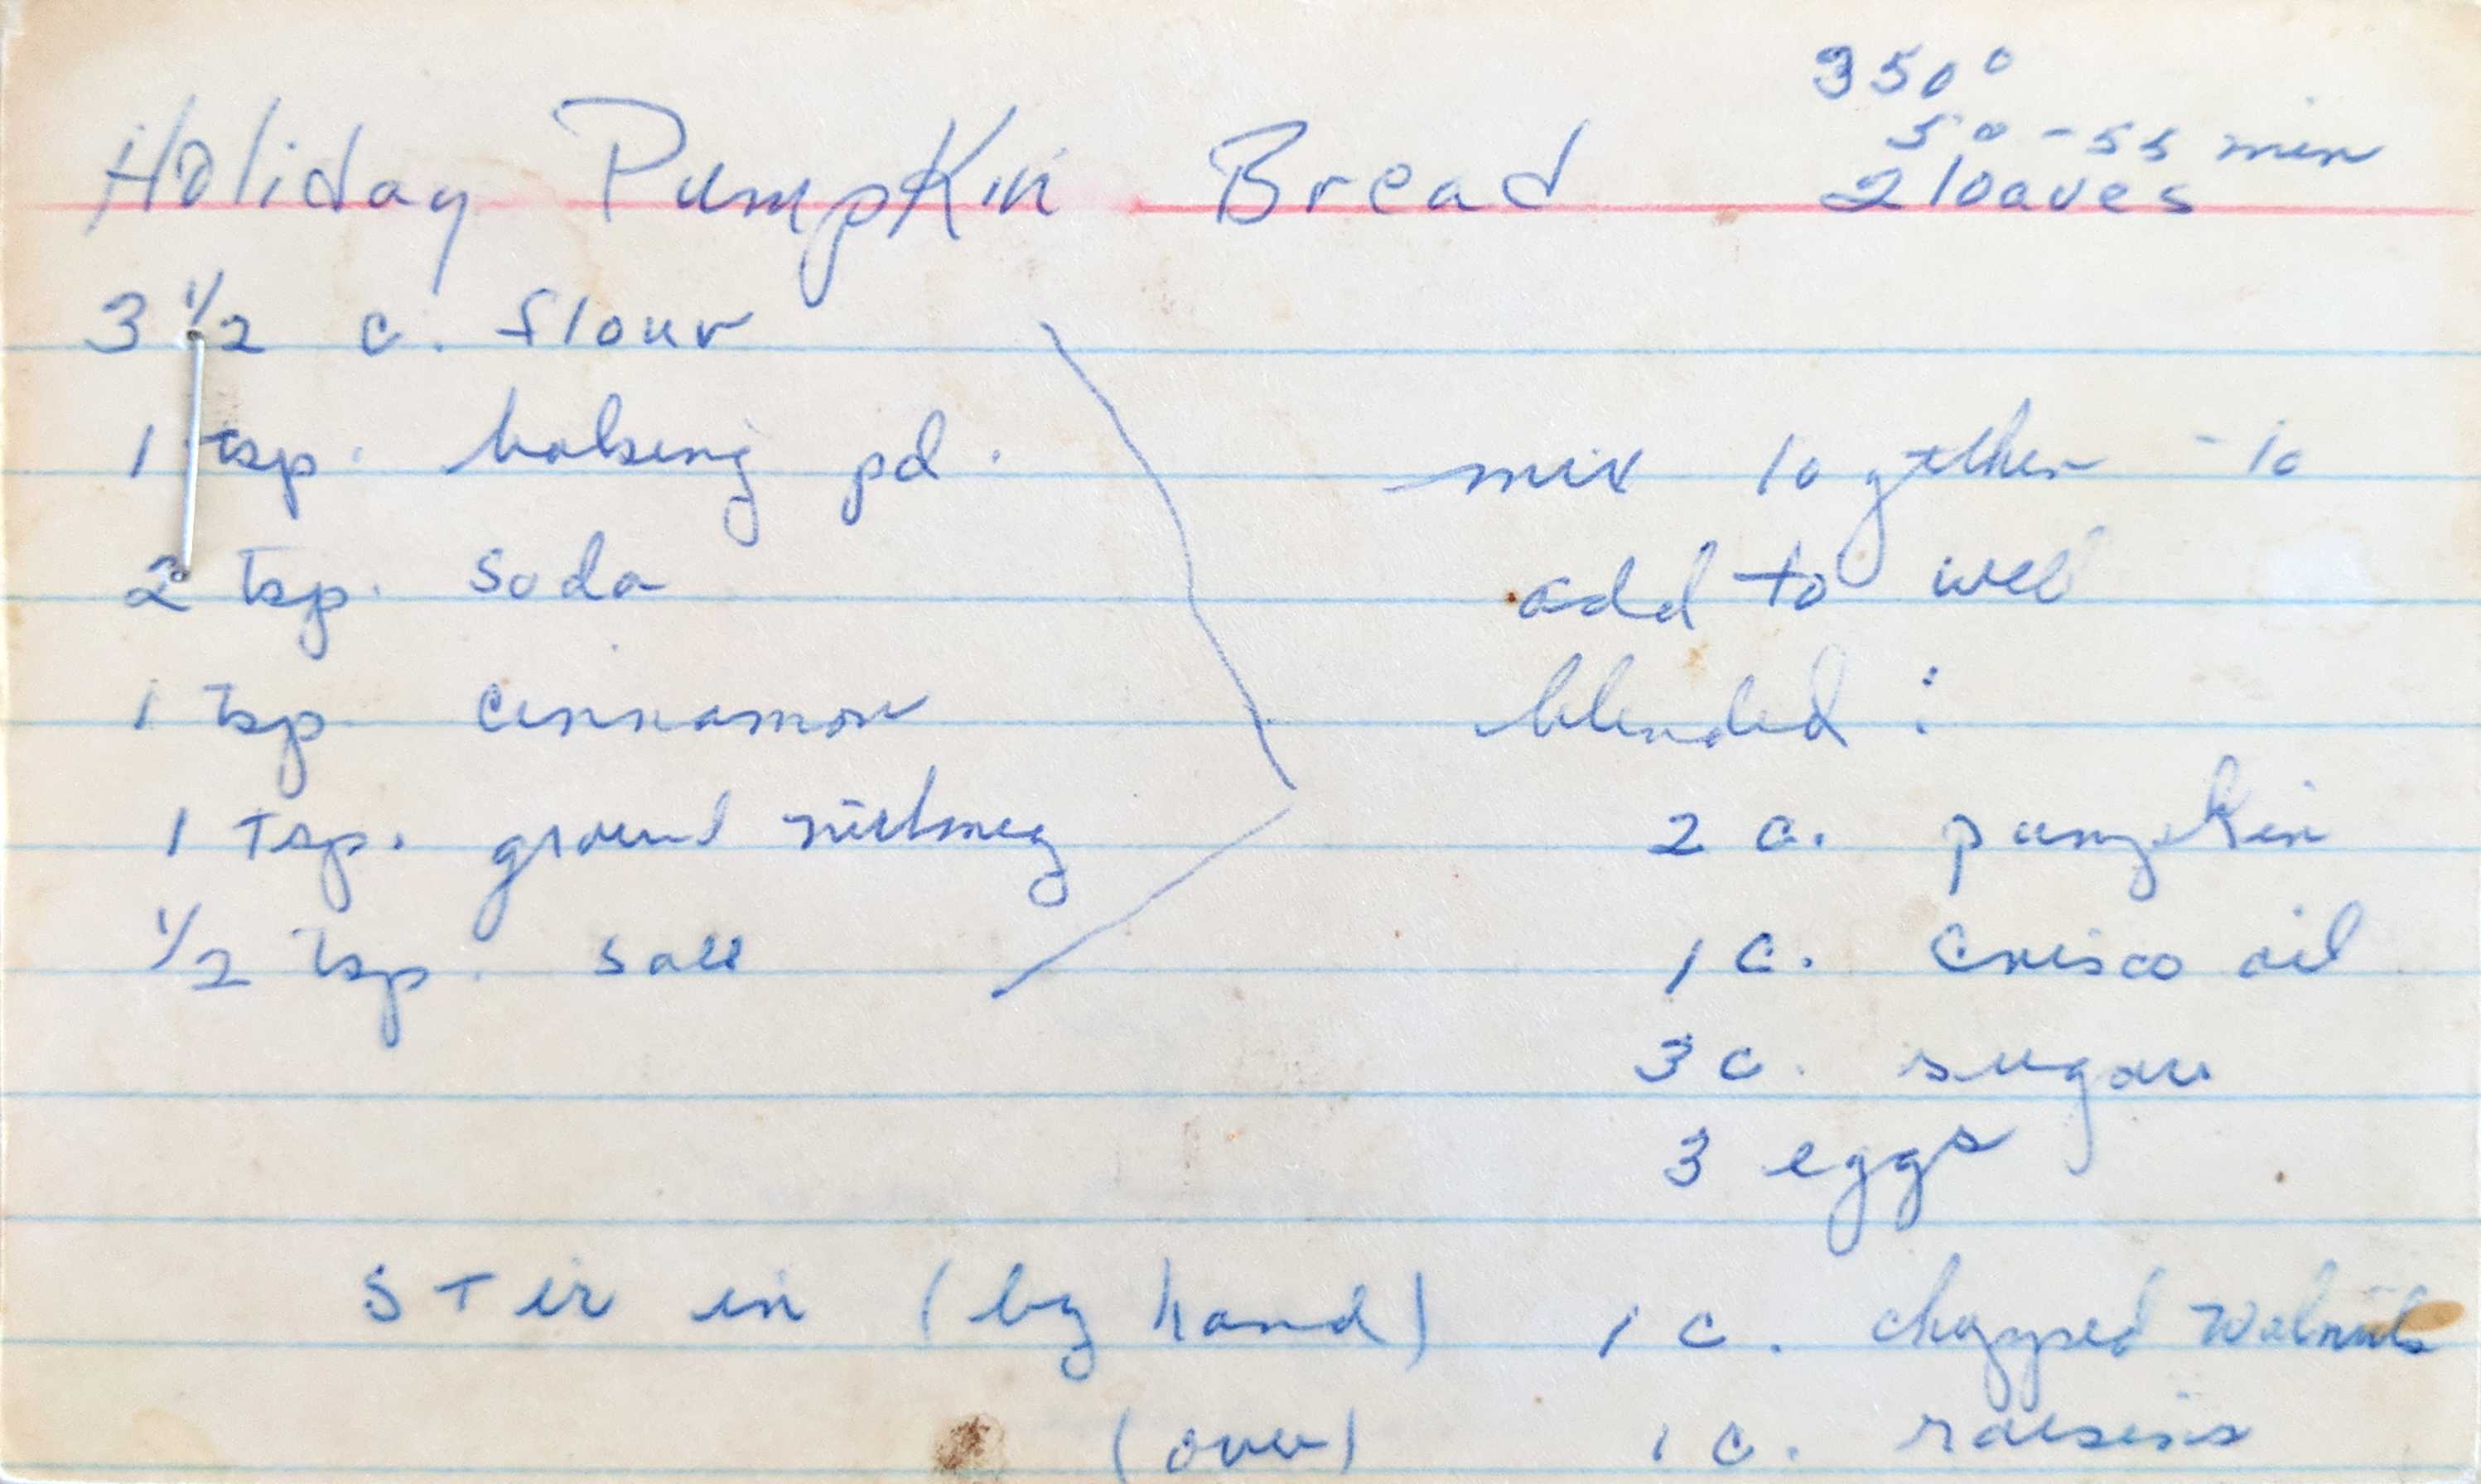 350°
50-55 min
Holiday Pumpkin Bread
2 loaves
3 1/2 c. flour
1 tsp. baking pd.
2 tsp. soda
1 tsp cinnamon
1 tsp. ground nutmeg
1/2 tsp. salt
mix together - to
add to well
blended :
2 c. pumpkin
1 c. Crisco oil
3 c. sugar
3 eggs
Stir in (by hand) 1 c. chopped walnuts
(over) 1 c. raisins